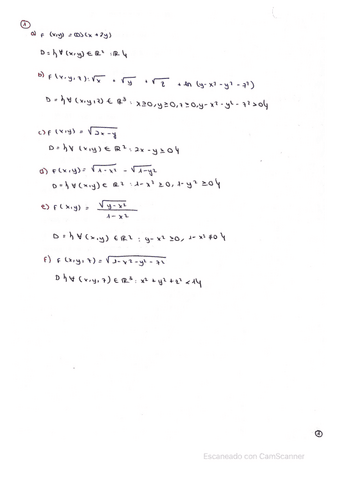 1
a) f (x,y) = cos(x + 2y)
D = { ∀ (x,y) ∈ ℝ² : ℝ }
b) f(x,y,z): √x + √y + √z + ln (y-x²-y²-z²)
D = { ∀ (x,y,z) ∈ ℝ³ : x≥0, y≥0, z≥0, y-x²-y²-z²>0 }
c) f(x,y) = √2x-y
D = { ∀ (x,y) ∈ ℝ² : 2x-y ≥ 0 }
d) f(x,y) = √1-x² - √1-y²
D = { ∀ (x,y) ∈ ℝ² : 1-x² ≥ 0, 1-y² ≥ 0 }
e) f(x,y) = √y-x² / 1-x²
D = { ∀ (x,y) ∈ ℝ² : y-x² ≥ 0, 1-x² ≠ 0 }
f) f (x,y,z) = √1-x²-y²-z²
D { ∀ (x,y,z) ∈ ℝ³ : x²+y²+z² < 1 }
1
Escaneado con CamScanner